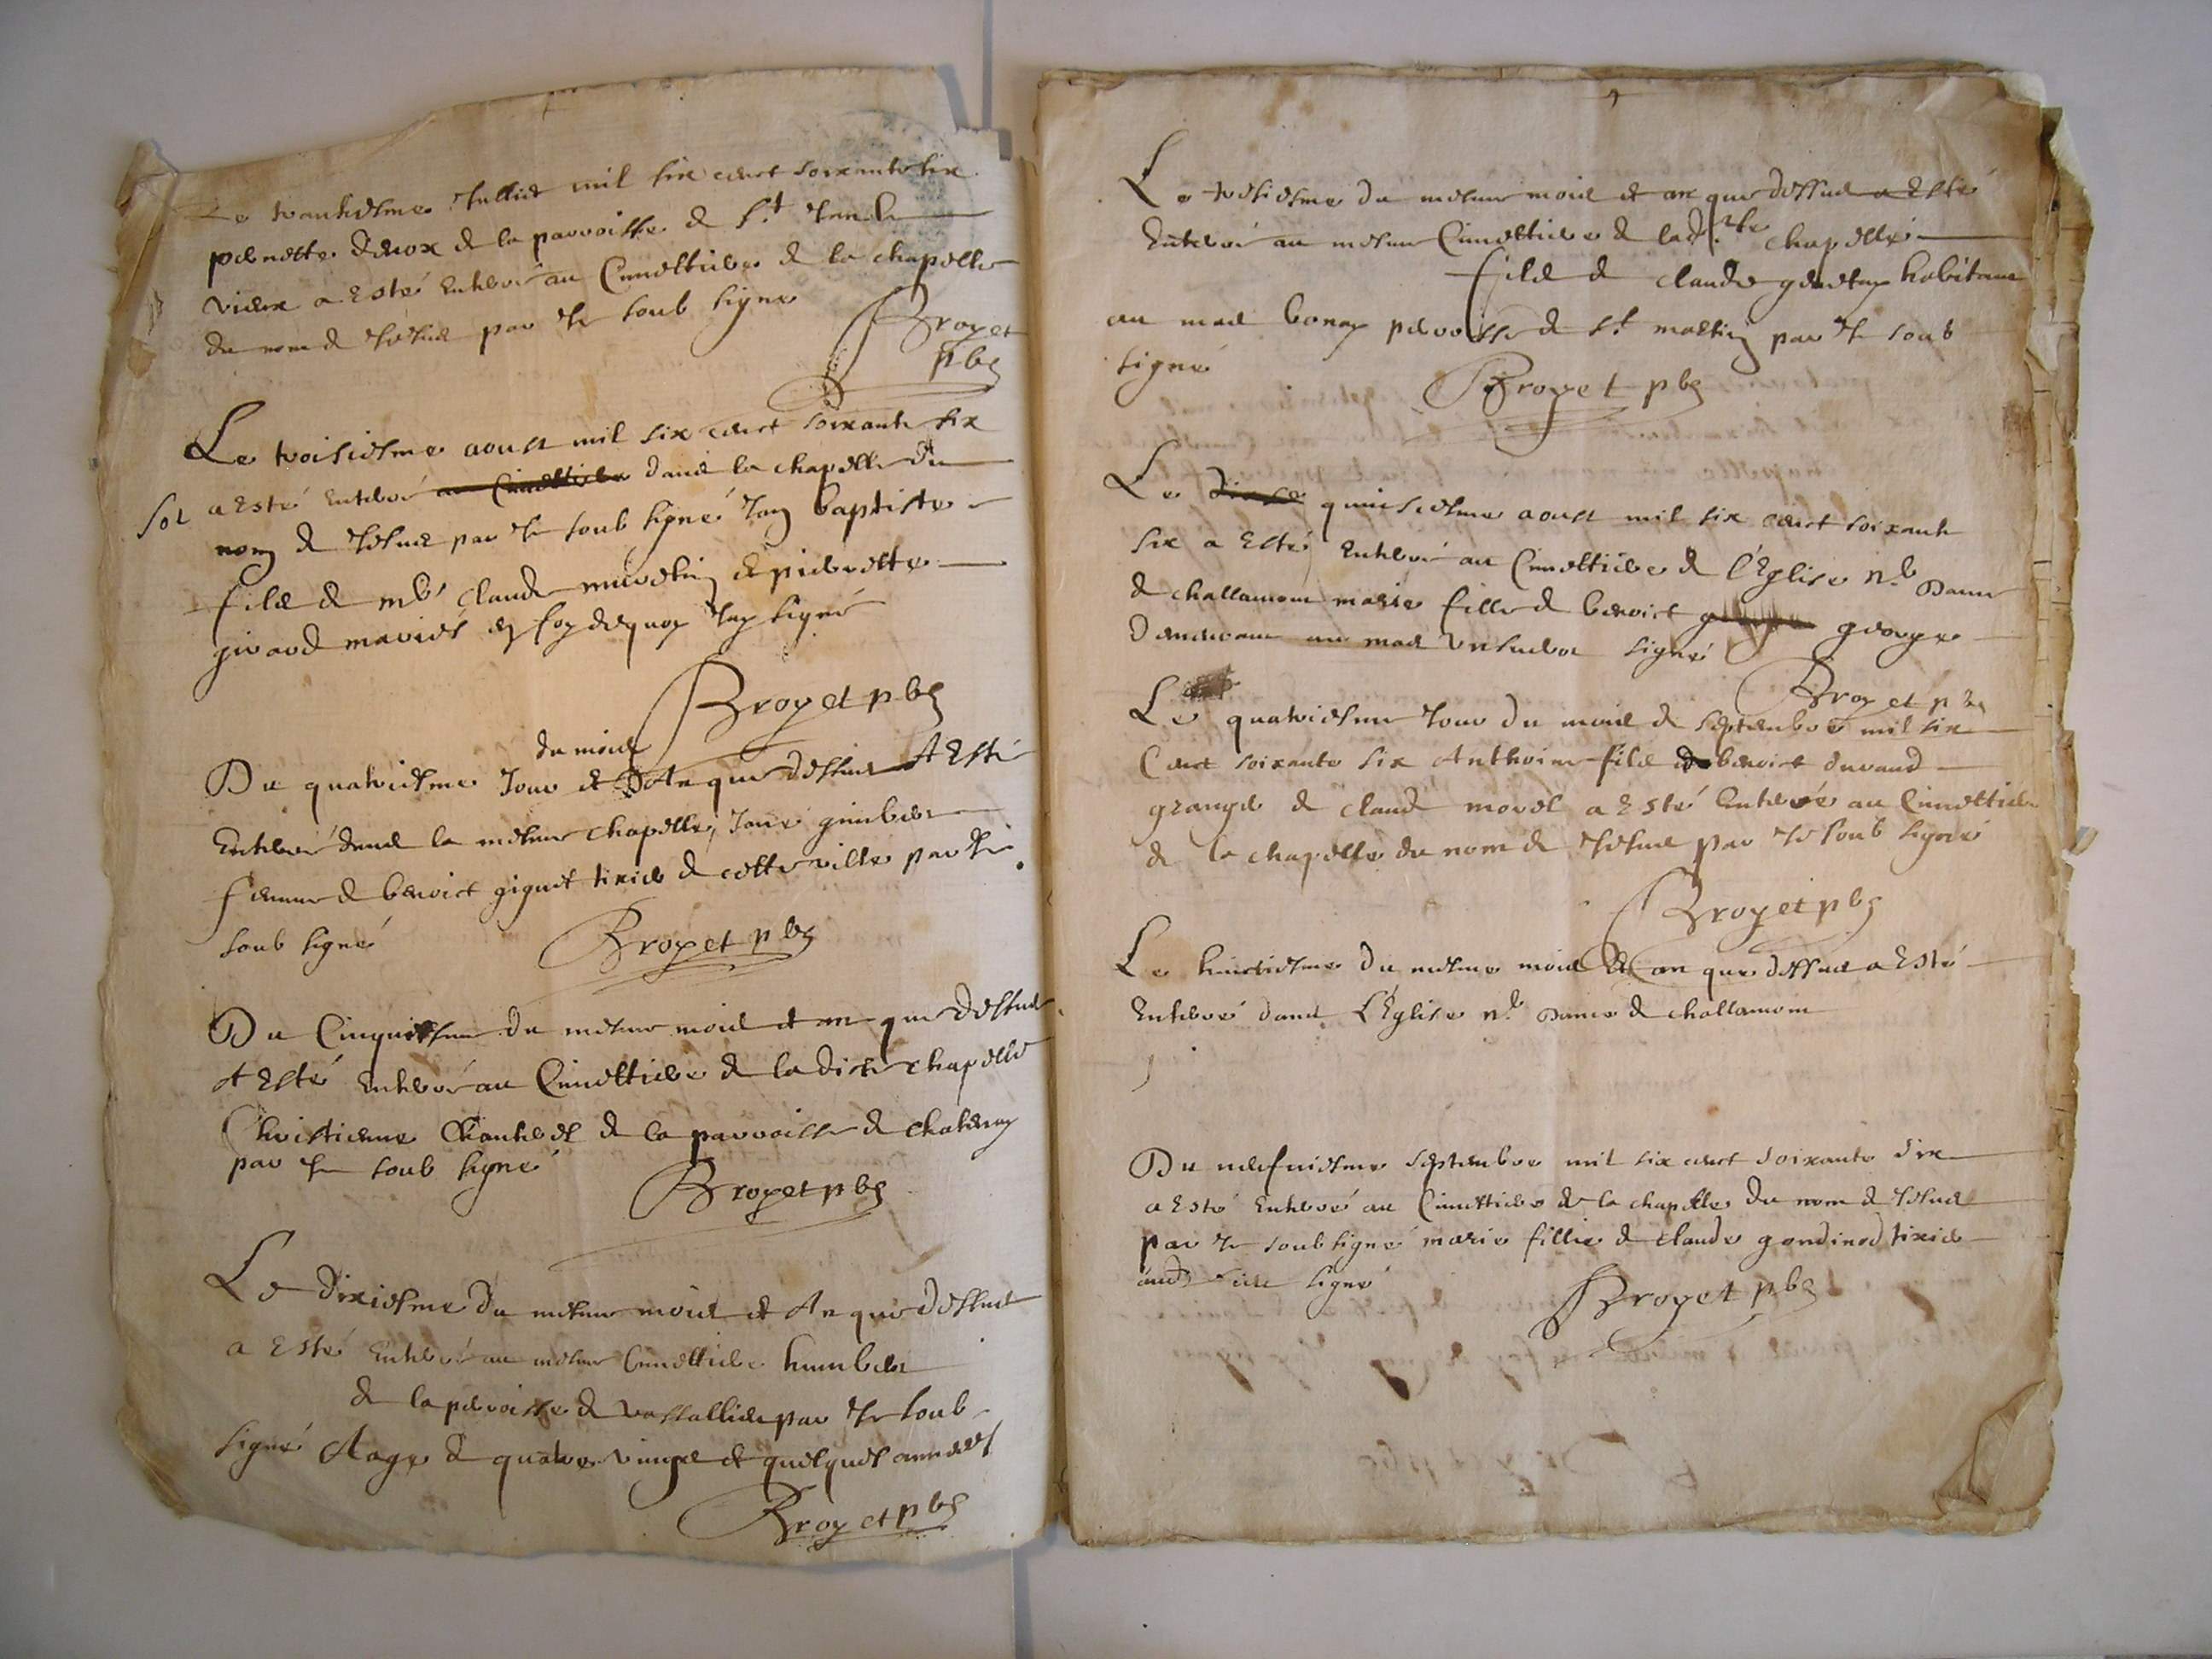 Le trantiesme Jullié mil six cent soixante six
pernette de la parroisse de St Jean le
vieux a Esté Enterré au Cimettiere de la chapelle
du nom de Jésus par Je soub signe
Broyet
pbr
Le troisiesme aoust mil six cent soixante six
sol a Esté Enterré au Cimettiere dans la chapelle du
nom de Jesus par Je soub signé Jan baptiste
fils de mre claude muretin et pierrette
girard mariés en foy dequoy Jay signé
Broyet pbr
du mois
Du quatriesme Jour et An que dessus A Esté
Enterré dans la mesme chapelle, Jane guinber
femme de benoict giguet tixier de cette ville par Je
soub signé
Broyet pbr
Du Cinquiesme du mesme mois et an que dessus
A Esté Enterré au Cimettiere de la dicte chapelle
Christienne Chantrel de la parroisse de chatenay
par Je soub signé
Broyet pbr
Le Dixiesme du mesme mois et An que dessus
a Esté Enterré au mesme Cimettiere humber
de la perroisse de par Je soub
signé Aage de quatre vingt et quelques années
Broyet pbr
Le treisiesme du mesme mois et an que dessus a Esté
Enterré au mesme Cimettiere de ladite chapelle
fils de claude habitans
au mas bonay perroisse de St martin par Je soub
signé
Broyet pbr
Le quinsiesme aoust mil six cent soixante
six a Esté Enterré au Cimettiere de l'Eglise nre Dame
de challamont marie fille de benoict george
demeurant au mas signé
Broyet pbr
Le quatriesme Jour du mois de septembre mil six
Cent soixante six Anthoine fils de benoict durand
granger de claude morel a Esté Enterré au Cimettiere
de la chapelle du nom de Jesus par Je soub signé
Broyet pbr
Le huictiesme du mesme mois et an que dessus a Esté
Enterré dans L'Eglise nre Dame de challamont
Du neufviesme septembre mil six cent soixante six
a Esté Enterré au Cimettiere de la chapelle du nom de Jesus
par Je soub signé marie fillie de claude gondinod tixier
signé
Broyet pbr